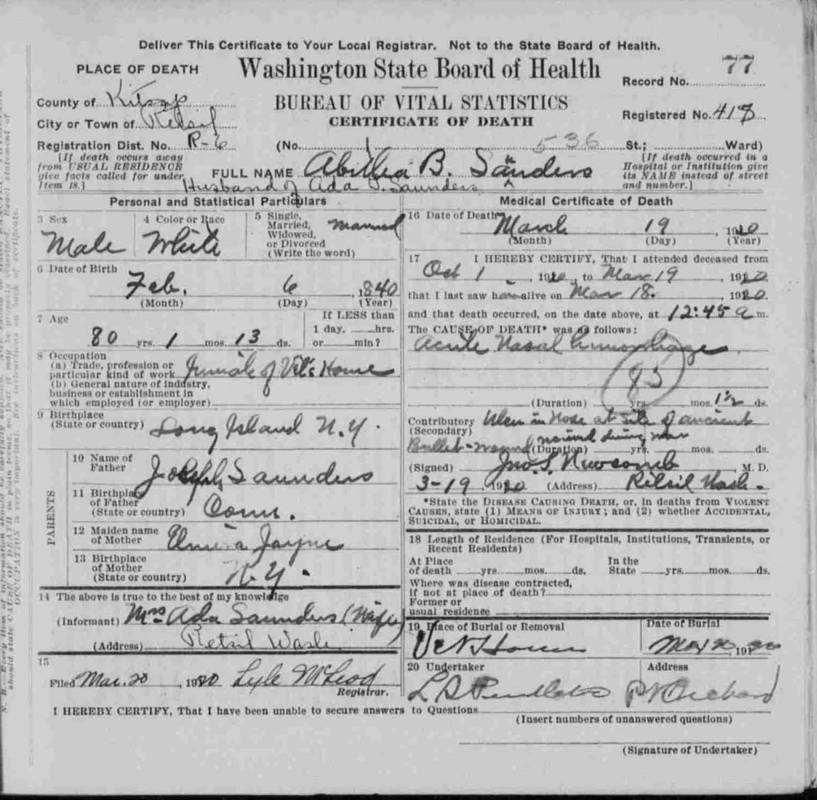 Deliver This Certificate to Your Local Registrar. Not to the State Board of Health.
PLACE OF DEATH
Washington State Board of Health
Record No. 77
County of Kitsap
BUREAU OF VITAL STATISTICS
City or Town of Retsil
CERTIFICATE OF DEATH
Registered No. 413
Registration Dist. No. R-6 (No. 536 St.; Ward)
[If death occurs away from USUAL RESIDENCE give facts called for under Item 18.]
FULL NAME B. Sanders
[If death occurred in a Hospital or Institution give its NAME instead of street and number.]
Husband of Ada Saunders
Personal and Statistical Particulars
3 Sex Male
4 Color or Race White
5 Single, Married, Widowed, or Divorced (Write the word) Married
6 Date of Birth Feb. 6 1840
(Month) (Day) (Year)
7 Age 80 yrs. 1 mos. 13 ds.
If LESS than 1 day. hrs. or min?
8 Occupation
(a) Trade, profession or particular kind of work Inmate of Vet's Home
(b) General nature of industry, business or establishment in which employed (or employer)
9 Birthplace (State or country) Long Island N.Y.
PARENTS
10 Name of Father Joseph Saunders
11 Birthplace of Father (State or country) Conn.
12 Maiden name of Mother Elmira Jayne
13 Birthplace of Mother (State or country) N.Y.
14 The above is true to the best of my knowledge
(Informant) Mrs Ada Saunders (Wife)
(Address) Retsil Wash
15
Filed Mar. 20 1920 Lyle McLeod
Registrar.
Medical Certificate of Death
16 Date of Death March 19, 1920
(Month) (Day) (Year)
17 I HEREBY CERTIFY, That I attended deceased from
Oct 1, 1920, to Mar 19 1920
that I last saw him alive on Mar 18. 1920
and that death occurred, on the date above, at 12:45 a m.
The CAUSE OF DEATH* was as follows:
Acute Nasal hemorrhage
85
(Duration) yrs. mos. 1/2 ds.
Contributory (Secondary) Ulcer in Nose at site of ancient
Bullet-wound, wound during war
(Duration) yrs. mos. ds.
(Signed) Jno. S. Newcomb, M. D.
3-19 1920 (Address) Retsil Wash.
*State the DISEASE CAUSING DEATH, or, in deaths from VIOLENT
CAUSES, state (1) MEANS OF INJURY; and (2) whether ACCIDENTAL,
SUICIDAL, or HOMICIDAL.
18 Length of Residence (For Hospitals, Institutions, Transients, or Recent Residents)
At Place of death yrs. mos. ds. In the State yrs. mos. ds.
Where was disease contracted, if not at place of death?
Former or usual residence
19 Place of Burial or Removal Vet Home
Date of Burial Mar 20, 1920
20 Undertaker L B Pendleton
Address Pt Orchard
I HEREBY CERTIFY, That I have been unable to secure answers to Questions
(Insert numbers of unanswered questions)
(Signature of Undertaker)